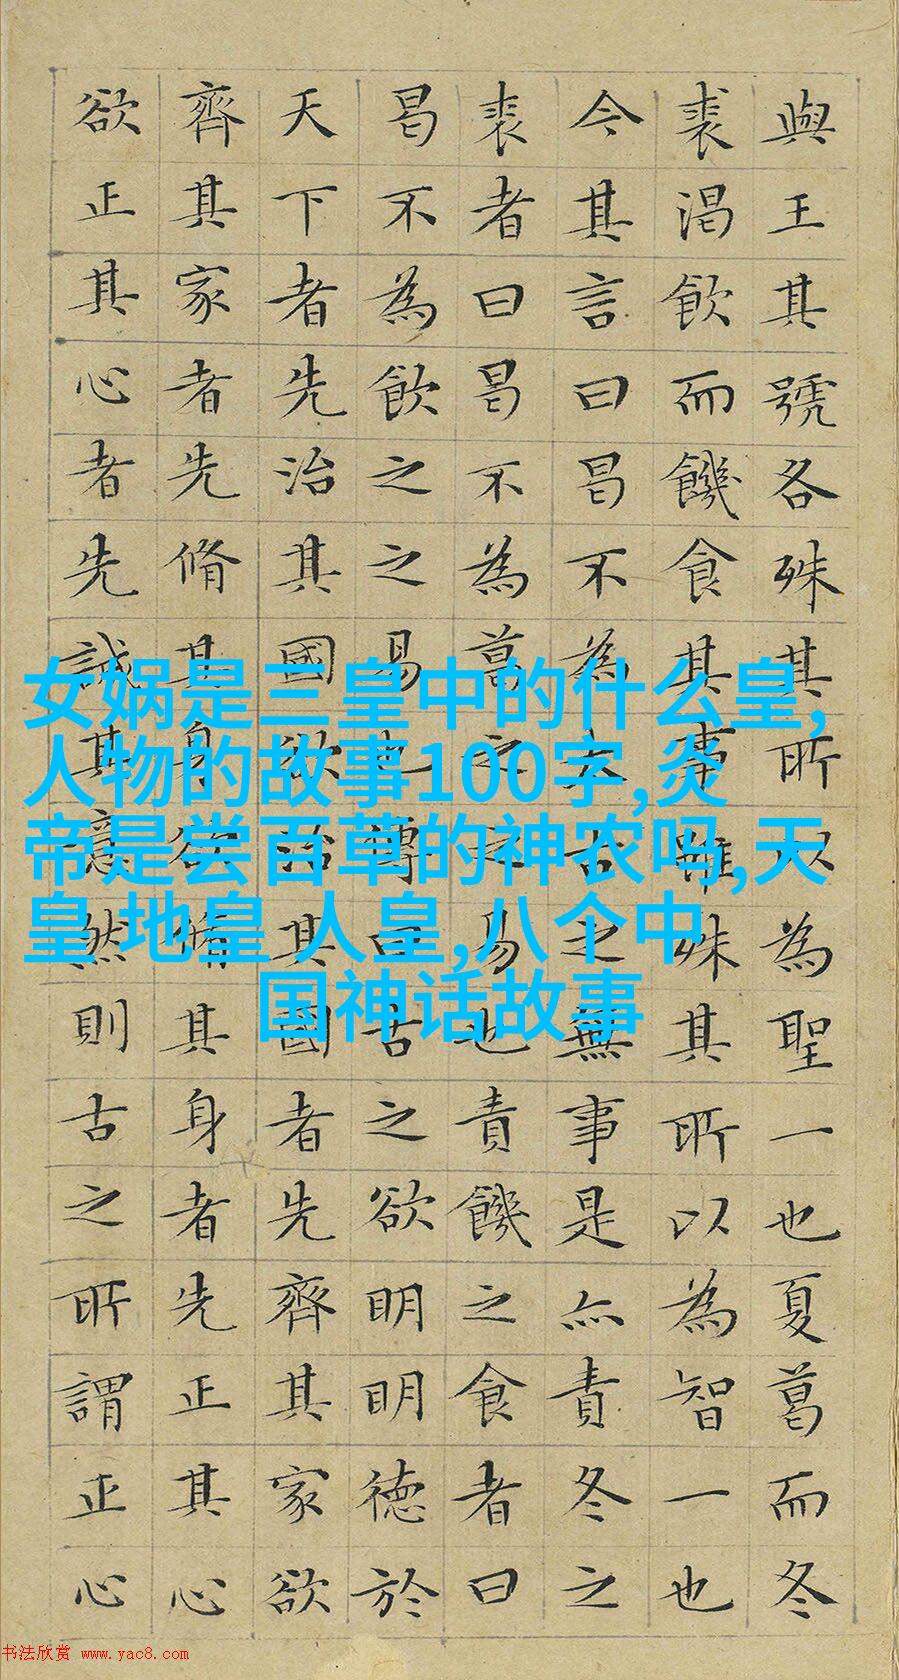 與王其號各殊其所以為聖一也夏葛而冬
裘渴飲而饑食其事雖殊其所以為智一也
今其言曰曷不為太古之無事是亦責冬之
裘者曰曷不為葛之之易也責饑之食者曰
曷不為飲之之易也傳曰古之欲明明德於
天下者先治其國欲治其國者先齊其家欲
齊其家者先脩其身欲脩其身者先正其心
欲正其心者先誠其意然則古之所謂正心
女娲是三皇中的什么皇,
人物的故事100字,炎
帝是尝百草的神农吗,天
皇 地皇 人皇,八个中
国神话故事
书法欣赏 www.yac8.com